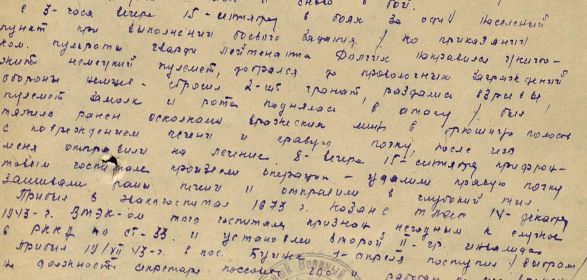 в 3-часа вечера 15-сентября в боях за один населеный
пункт при выполнении боевого задания / по приказаний
ком. пульроты гварди Лейтената Долгих направился уничто-
жить немецкий пулемет, добрался до проволочных заграждений
обороны немцев - сбросил 2-шт гранат, раздались взрывы
пулемет замолк и рота поднялась в атаку /. был
тяжело ранен осколком вражеских мин в брюшную полость
с повреждением печени и правую почку, после чего
меня отправили на лечение. 8-вечера 15-сентября прифрон-
товом госпитале произвели операцию - удалили правую почку
зашивали раны печени и отправили в глубокий тыл
Прибыл в эвакгоспитал 1673 г. Казань ТАССР 14-декабря
1943-г. ВТЭК-ом того госпиталя признан негодным к службе
в РККА по ст-33. и установлен второй II-гр. инвалида
Прибыл 19/VII 43-г. в пос. апреля поступил
на должность секретаря